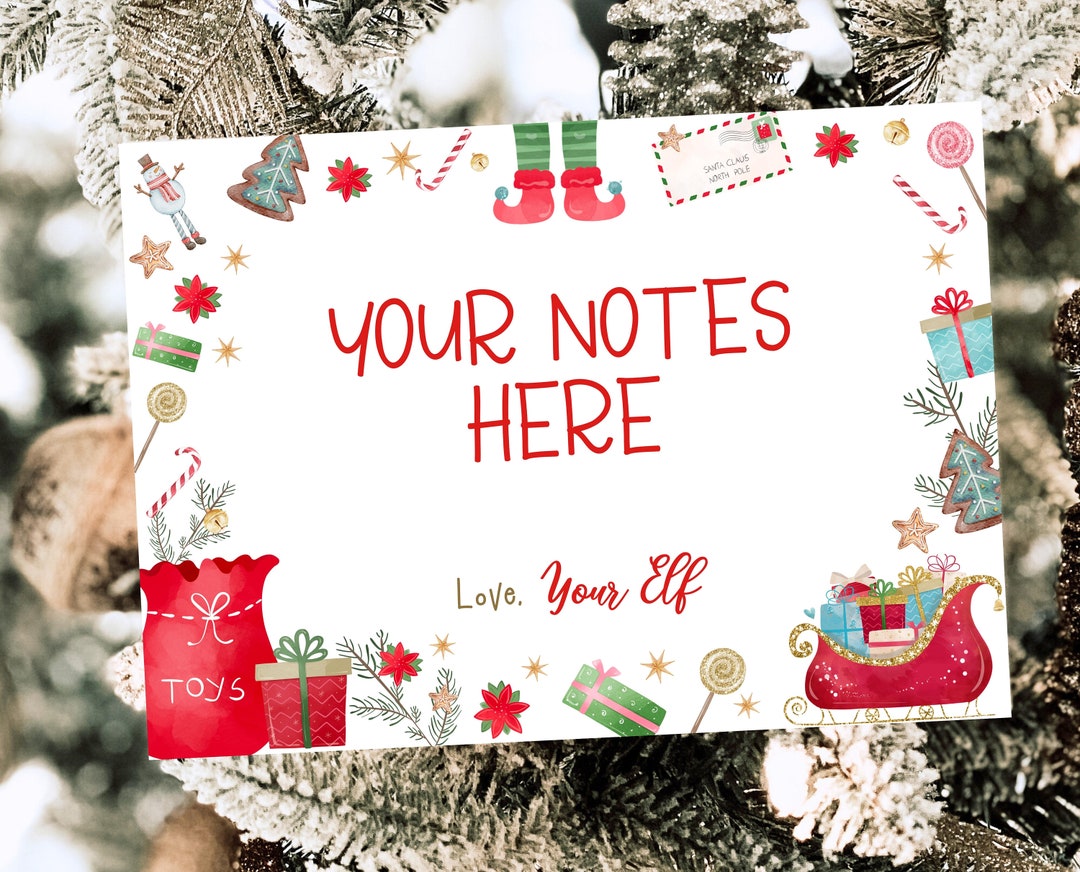 SANTA CLAUS
NORTH POLE
YOUR NOTES
HERE
Love, Your Elf
TOYS